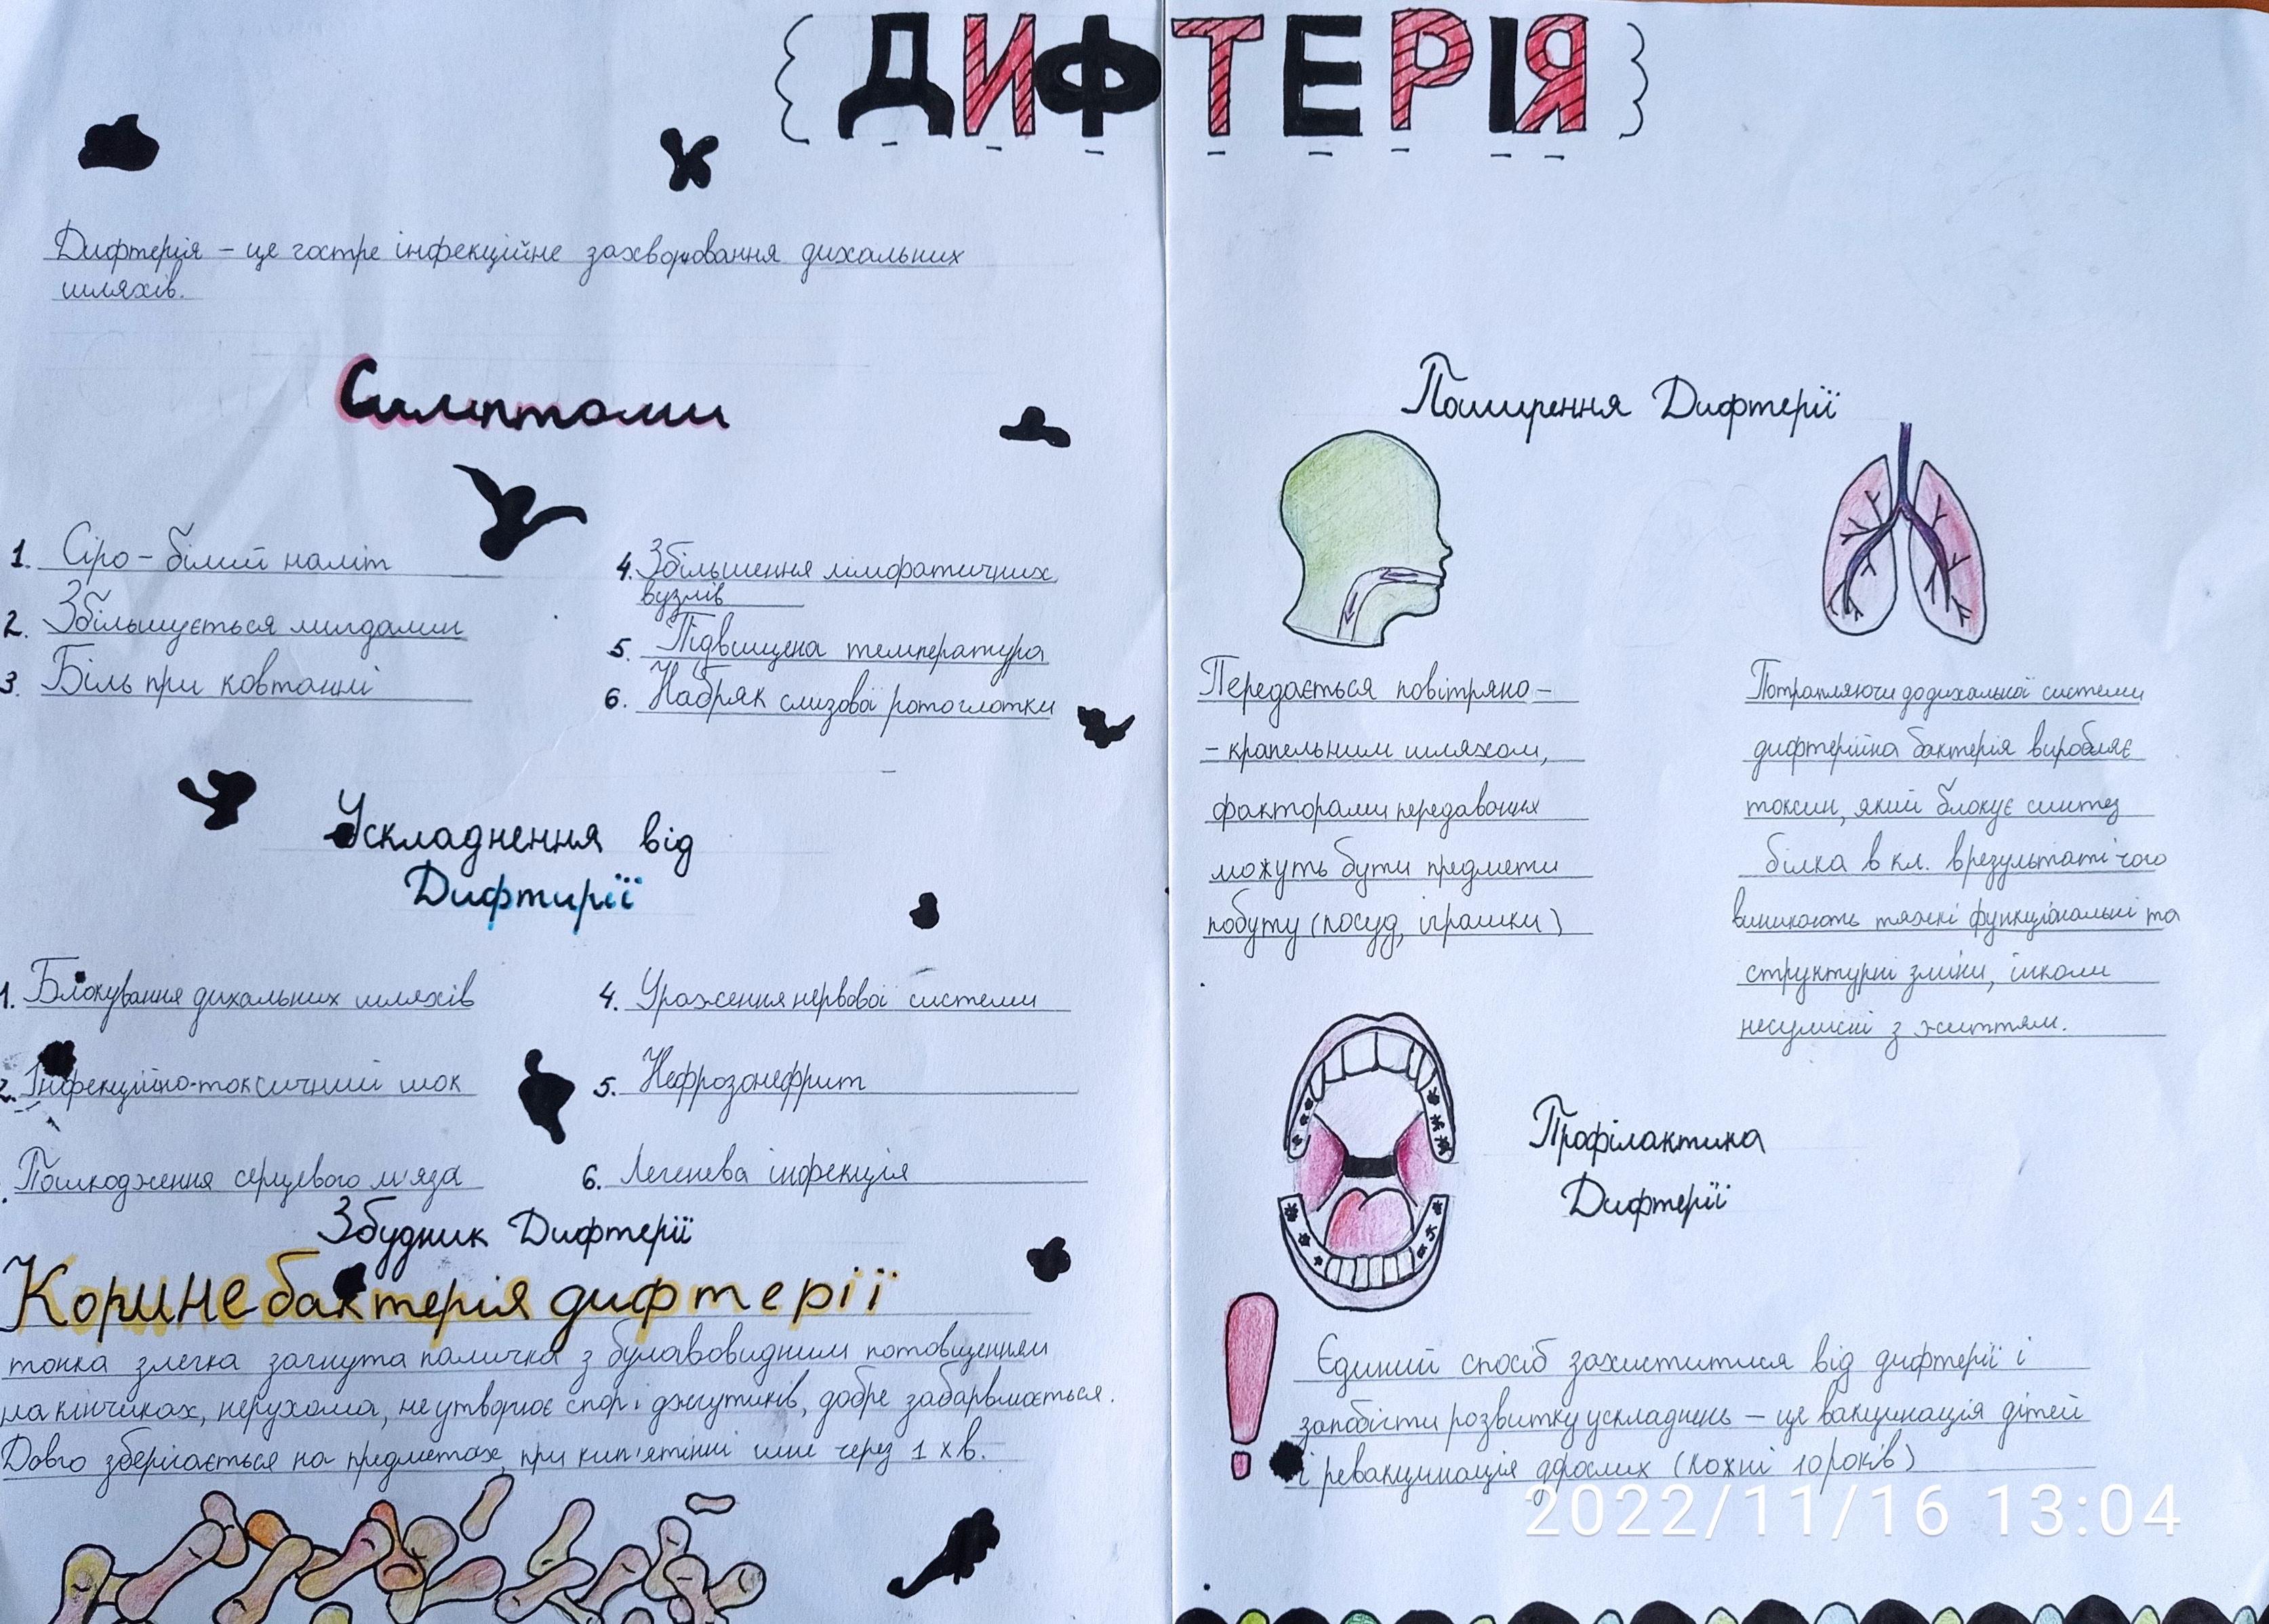 ДИФТЕРІЯ
Дифтерія – це гостре інфекційне захворювання дихальних
шляхів.
Симптоми
1. Сіро – білий наліт
2. Збільшується мигдалин
3. Біль при ковтанні
4. Збільшення лімфатичних
вузлів
5. Підвищена температура
6. Набряк слизової ротоглотки
Ускладнення від
Дифтирії
1. Блокування дихальних шляхів
2. Інфекційно-токсичний шок
Пошкодження серцевого м'яза
4. Ураження нервової системи
5. Нефрозонефрит
6. Легенева інфекція
Збудник Дифтерії
Коринебактерія дифтерії
тонка злегка загнута паличка з булавовидним потовщенням
на кінчиках, нерухома, не утворює спор і джгутиків, добре забарвлюється.
Довго зберігається на предметах, при кип'ятінні гине через 1 хв.
Поширення Дифтерії
Передається повітряно –
– крапельним шляхом,
факторами передавання
можуть бути предмети
побуту (посуд, іграшки)
Потрапляючи до дихальної системи
дифтерійна бактерія виробляє
токсин, який блокує синтез
білка в кл. в результаті чого
виникають тяжкі функціональні та
структурні зміни, інколи
несумісні з життям.
Профілактика
Дифтерії
Єдиний спосіб захиститися від дифтерії і
запобігти розвитку ускладнень – це вакцинація дітей
і ревакцинація дорослих (кожні 10 років)
2022/11/16 13:04